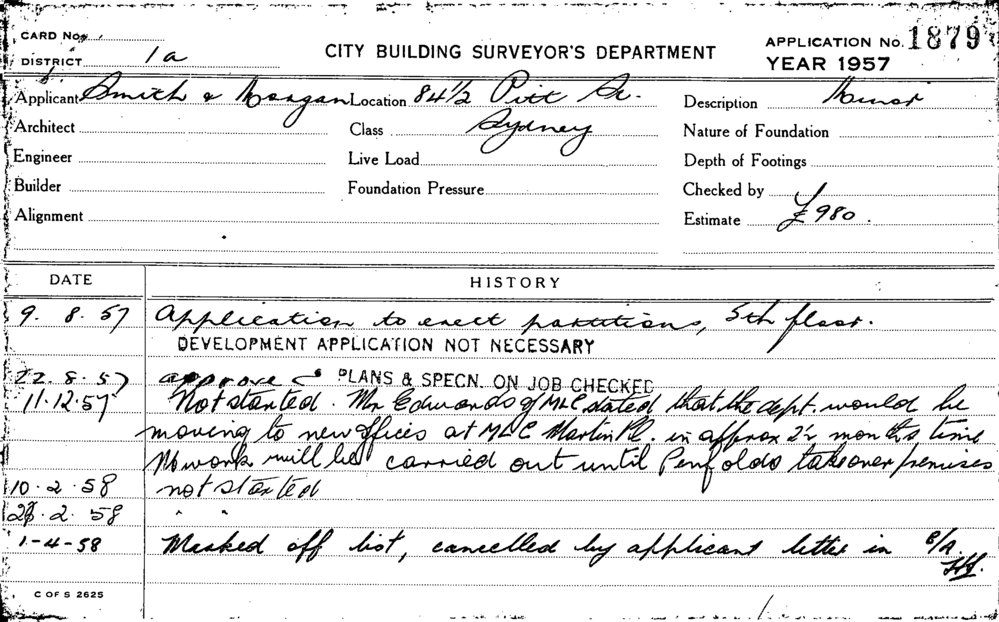 CARD No.
DISTRICT 1a
CITY BUILDING SURVEYOR'S DEPARTMENT
APPLICATION No. 1879
YEAR 1957
Applicant Smith & Morgan Location 84½ Pitt St. Description Minor
Architect Class Sydney Nature of Foundation
Engineer Live Load Depth of Footings
Builder Foundation Pressure Checked by
Alignment Estimate £980.
DATE HISTORY
9. 8. 57 Application to erect partitions, 5th floor.
DEVELOPMENT APPLICATION NOT NECESSARY
22. 8. 57 approve PLANS & SPECN. ON JOB CHECKED
11.12.57 Not started. Mr Edwards of MLC stated that the dept. would be
moving to new offices at MLC Martin Pl. in approx 2½ months time
No work will be carried out until Penfolds take over premises
10. 2. 58 not started
2. 58 " "
1-4-58 Marked off list, cancelled by applicant letter in B/A.
C OF S 2625